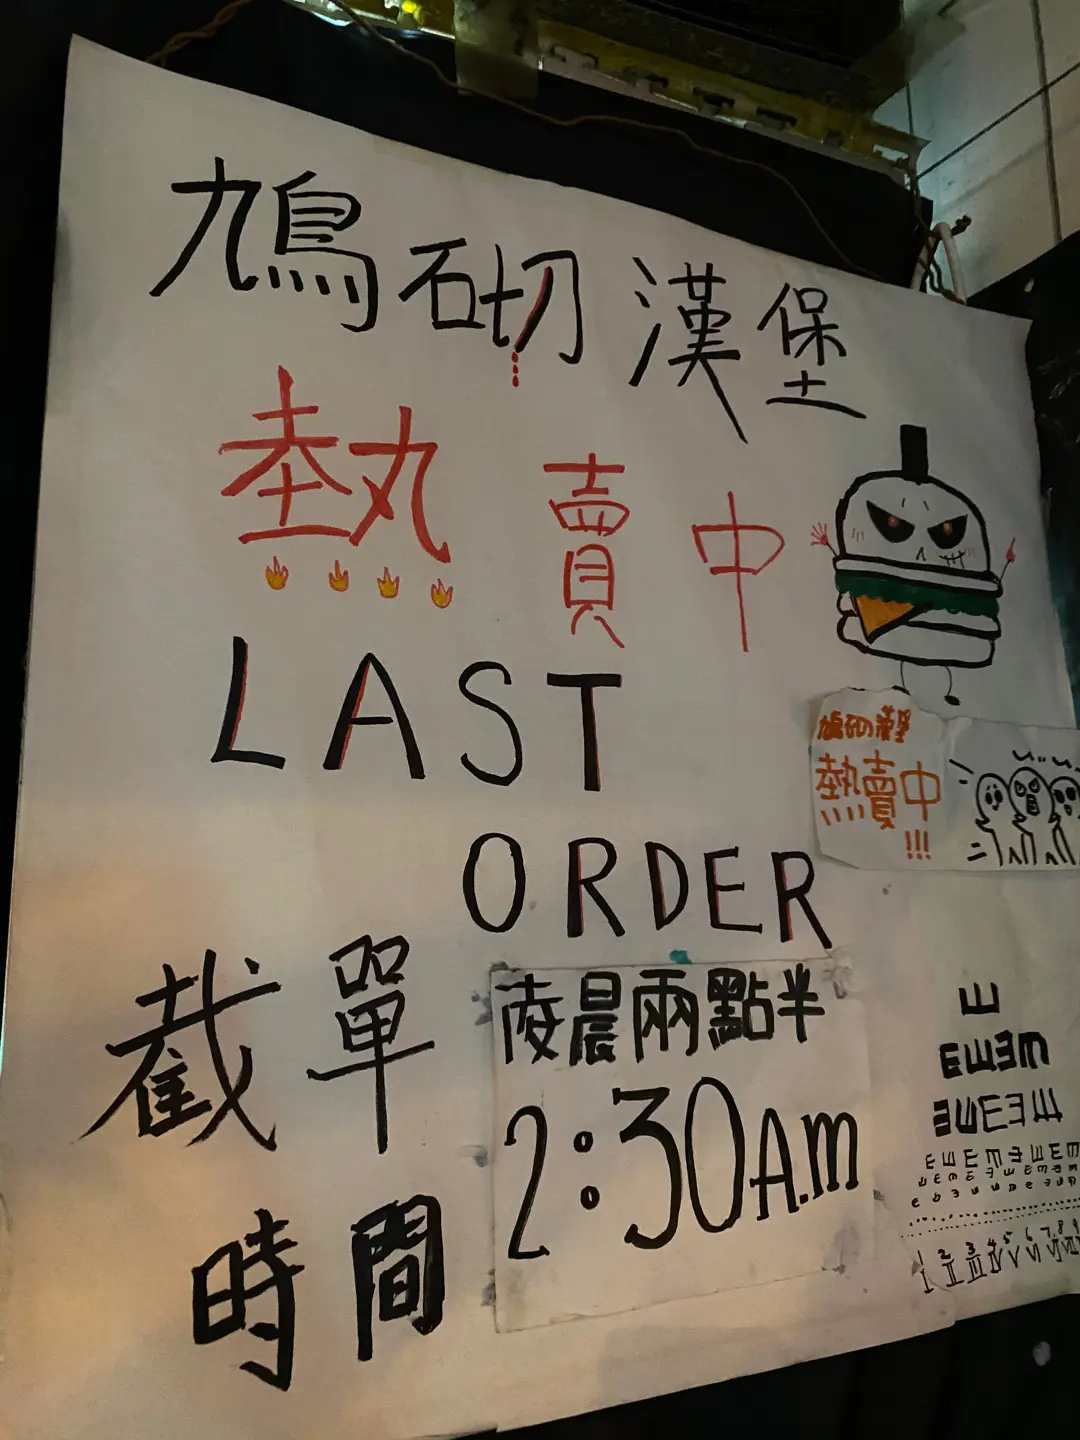 鳩砌漢堡
熱賣中
LAST
ORDER
截單
時間
凌晨兩點半
2:30A.M
鳩砌漢堡
熱賣中
!!!
E